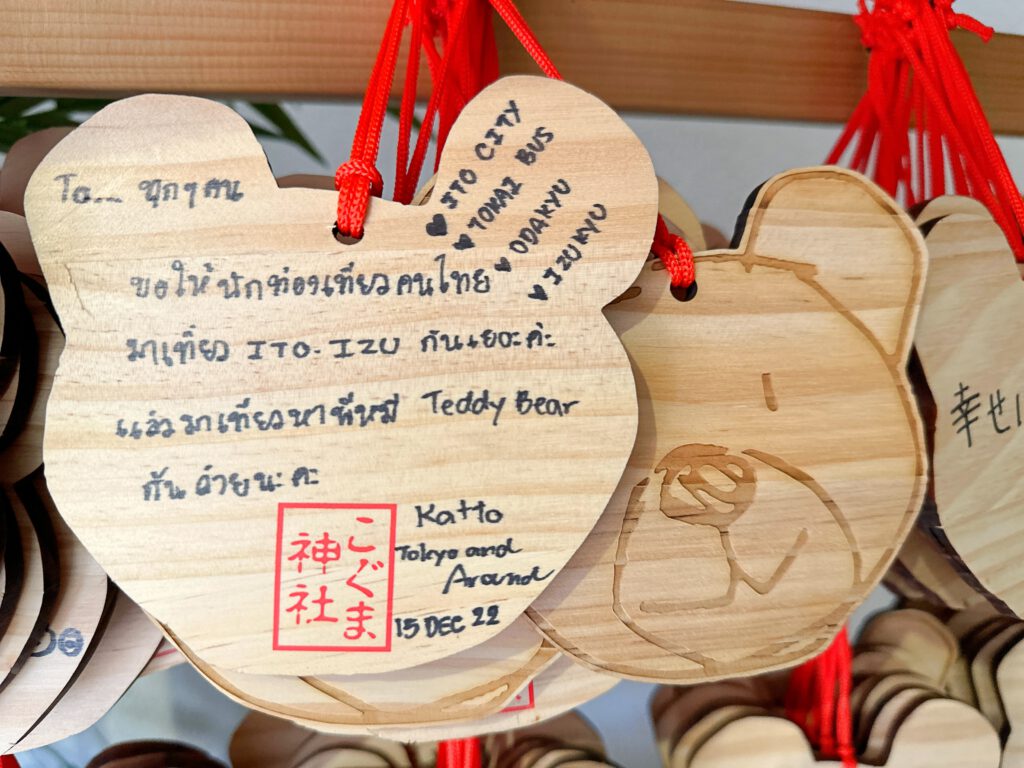 To... ทุกๆคน
♥ ITO CITY
♥ TOKAI BUS
♥ ODAKYU
♥ IZUKYU
ขอให้นักท่องเที่ยวคนไทย
มาเที่ยว ITO-IZU กันเยอะค่ะ
แล้วมาเที่ยวหาพี่หมี Teddy Bear
กันด้วยนะคะ
こぐま
神社
Katto
Tokyo and
Around
15 DEC 22
幸せに